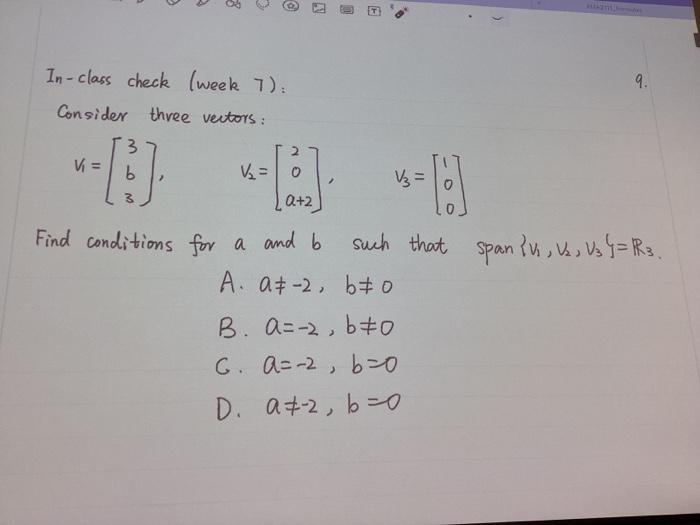 In-class check (week 7):
9.
Consider three vectors:
V₁ = [3 b 3], V₂ = [2 0 a+2], V₃ = [1 0 0]
Find conditions for a and b such that span {V₁, V₂, V₃} = ℝ₃.
A. a≠-2, b≠0
B. a=-2, b≠0
C. a=-2, b=0
D. a≠-2, b=0